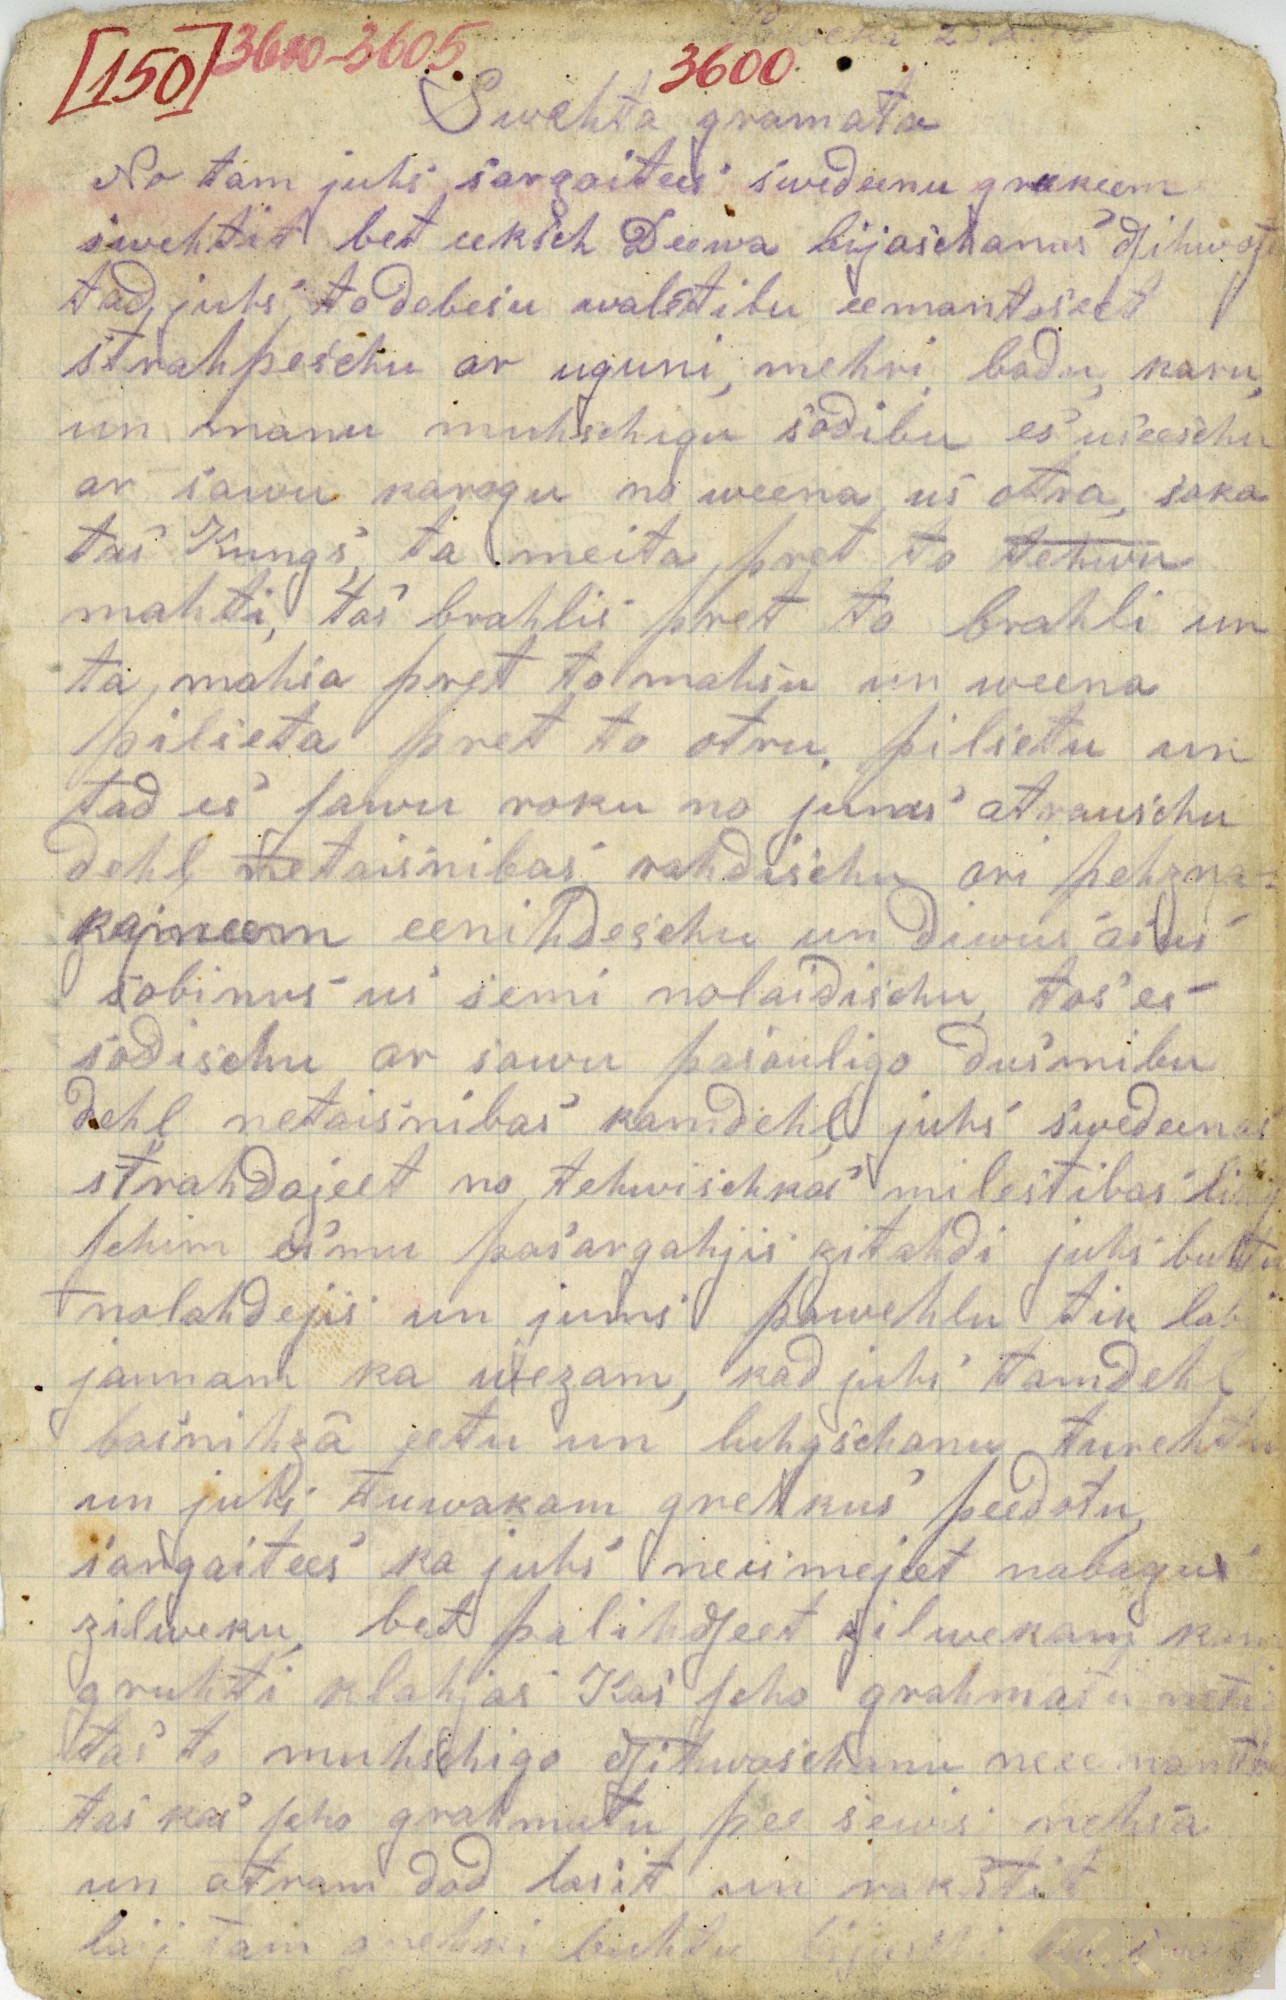 [150] 3600-3605 3600
Swehta gramata
No tam juhs sargaitees swedeenu grekeem
swehtit bet eeksch Deewa bijaschanas dsihwoje
tad juhs to debesu walstibu eemantoseet
strahpeschu ar uguni, mehri, badu, karu,
un manu muhschigu sodibu es useeschu
ar sawu karogu no weena us otra, saka
tas Kungs, ta meita pret to tehwu
mahti, tas brahlis pret to brahli un
ta mahsa pret to mahsu un weena
pilseta pret to otru, pilsetu un
tad es sawu roku no jums atrauschu
dehl netaisnibas rahdischu ari pehrna-
kajneem eenihdeschu un diwus asus
sobinus us semi nolaidischu, tos es
sodischu ar sawu pasauligo dusmibu
dehl netaisnibas kamdehl juhs swedeenas
strahdajeet no tehwischkas milestibas lihds
schim esmu pasargahjis zitahdi juhs buhtu
nolahdejis un jums pawehlu tik lab
jaunam ka wezam, kad juhs tamdehl
basnihzâ eetu un luhgschanu turehtu
un juhs tuwakam grehkus peedotu,
sargaitees ka juhs neismejeet nabagus
zilweku, bet palihdseet zilwekam, kam
gruhti klahjas Kas scho grahmatu netiz
tas to muhschigo dsihwoschanu neeemanto
tas kas scho grahmatu pee sewis nehsa
un otram dod lasit un rakstit
lai tam grehki buhtu